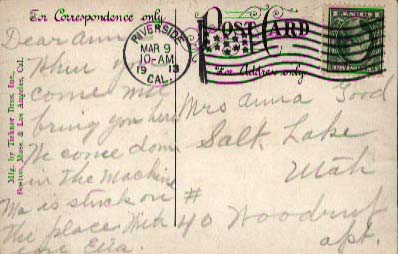 For Correspondence only
POST CARD
For Address only
RIVERSIDE
MAR 9
10-AM
1913
CAL.
Mfg. by Tichnor Bros. Inc.,
Boston, Mass. & Los Angeles, Cal.
Dear Anna
When you
come
bring you here
We come down
in the Machine
Ma is stuck on
the place With
love Etta.
Mrs Anna Good
Salt Lake
Utah
#
40 Woodruf
apt.